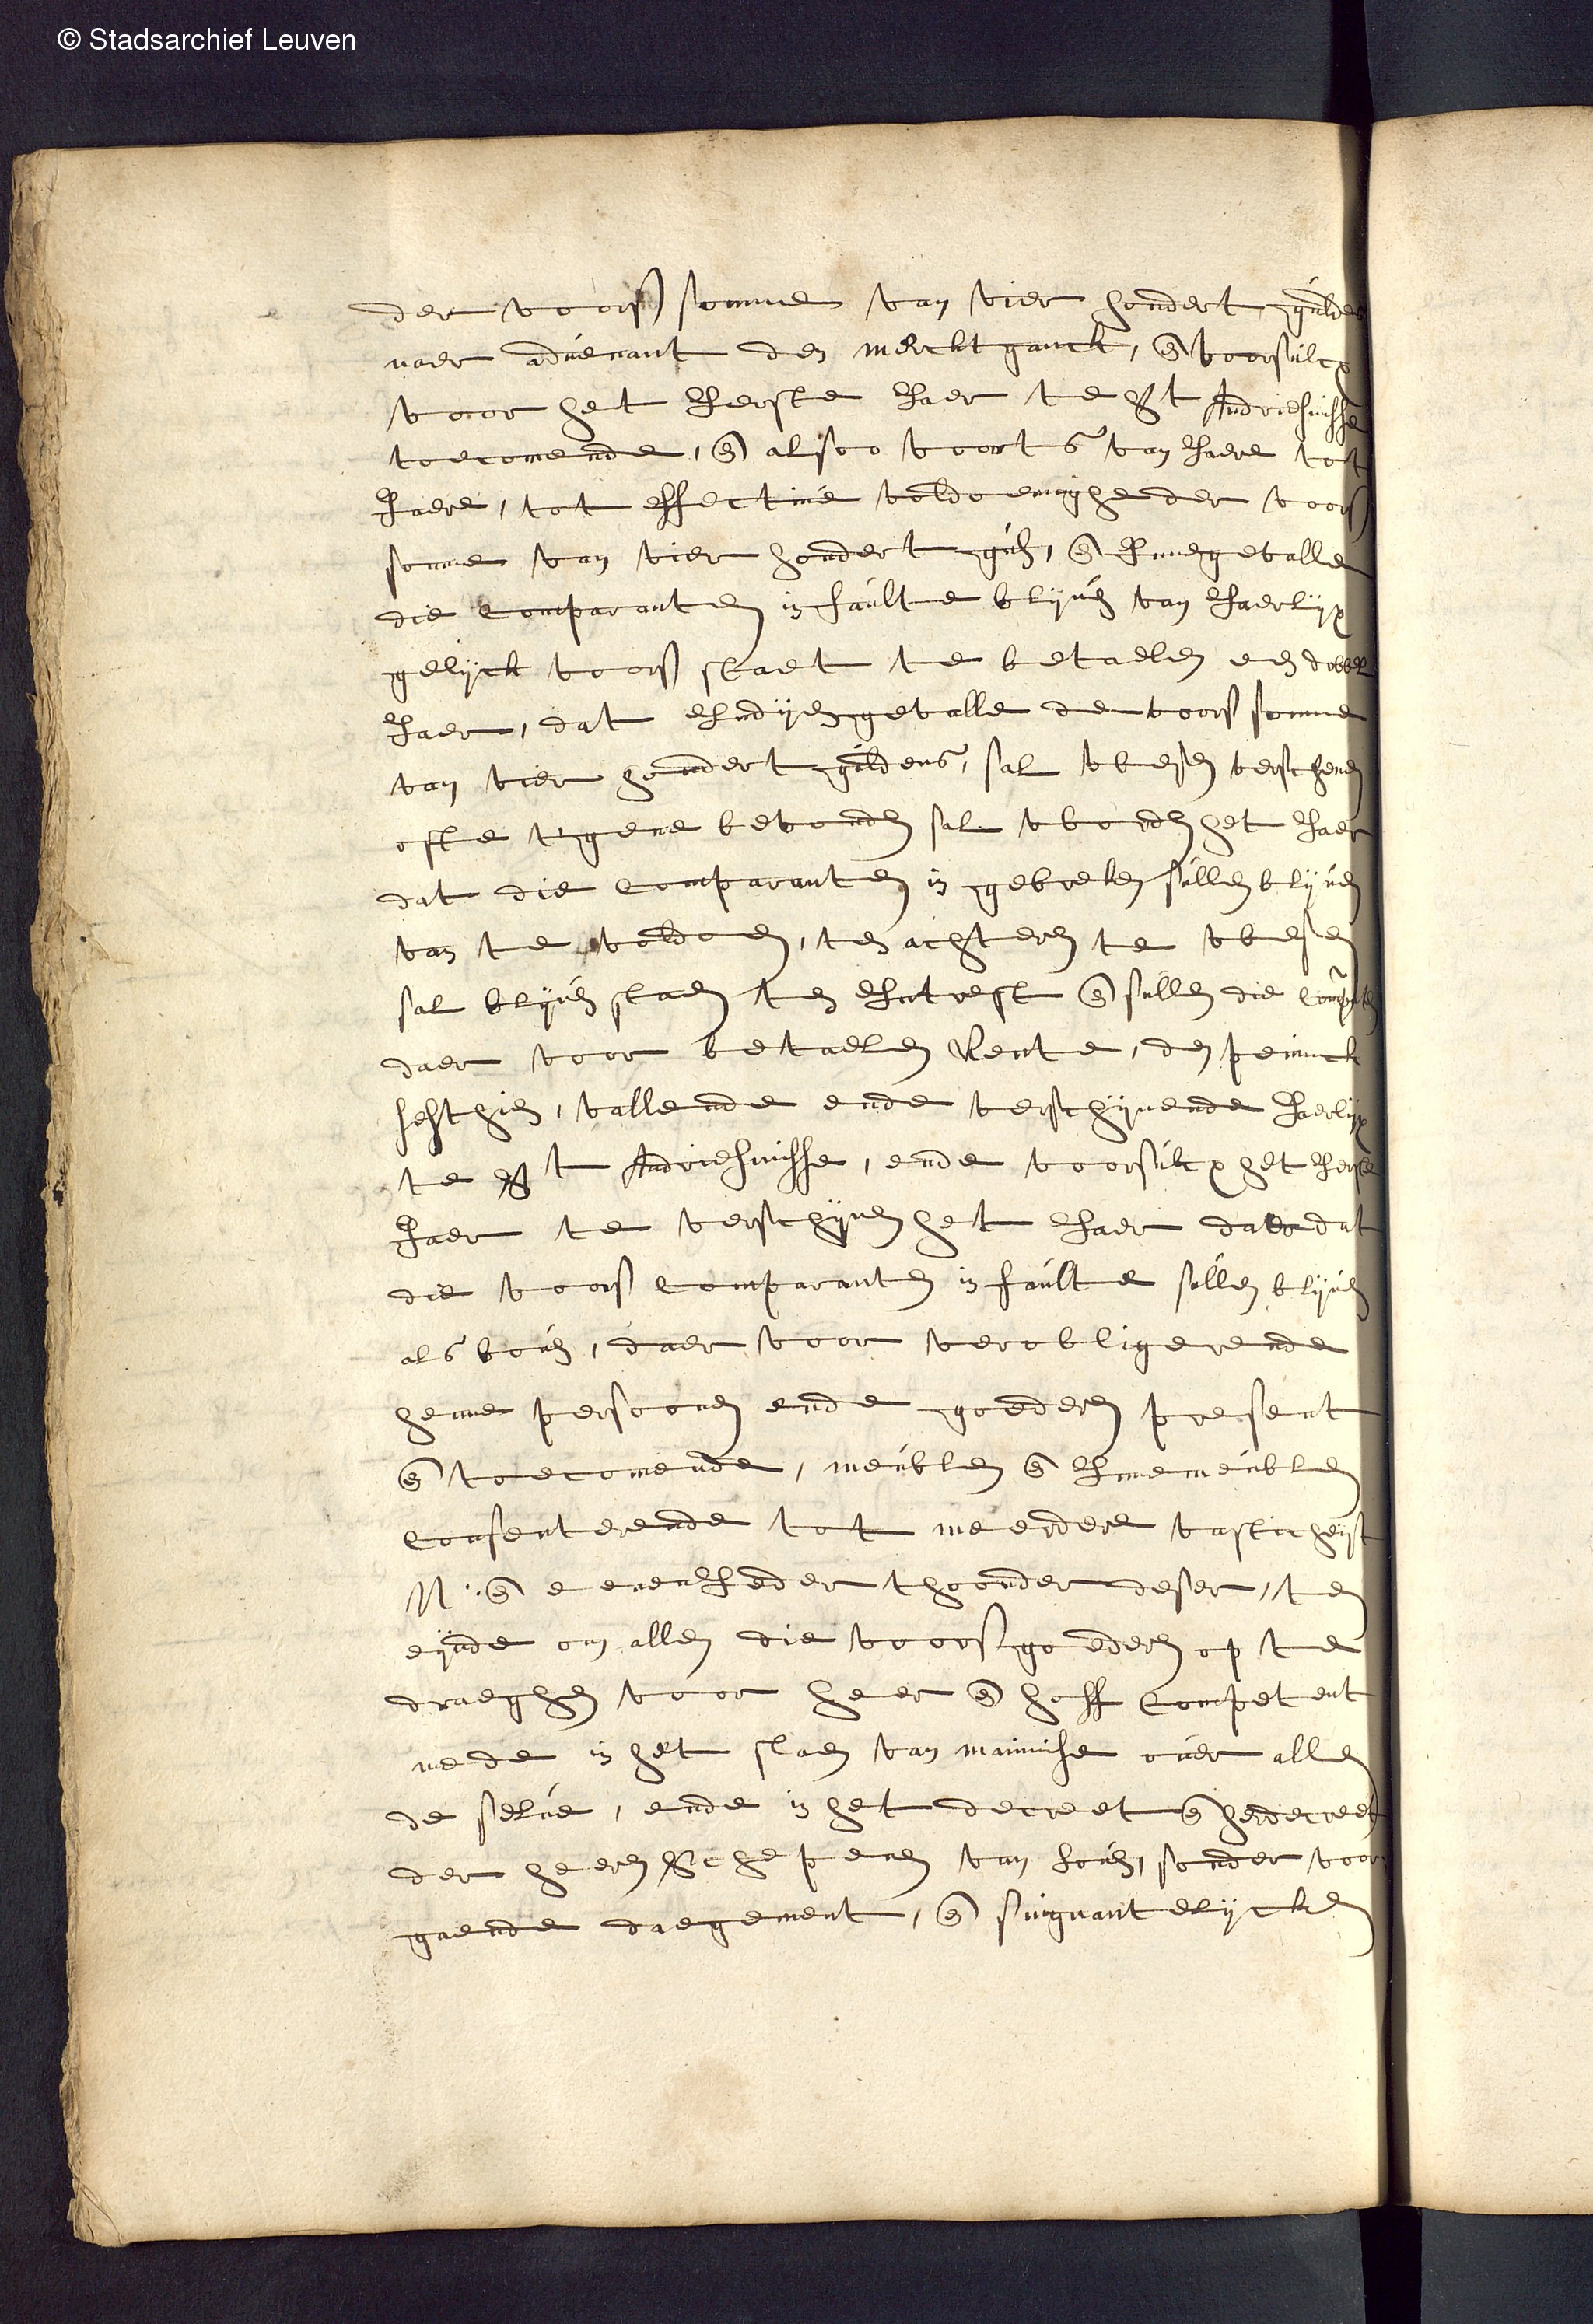 © Stadsarchief Leuven
der voors somme van vier hondert gulden
naer advenant den merckt ganck, en voorsulcx
voor het Ierste Iaer te St Andriesmisse
toecomende, en alsoo voorts van Iaere tot
Iaere, tot effective voldoeninghe der voors
somme van vier hondert guls, en Innegevalle
die Comparanten in faulte blyven van Iaerlyx
gelyck voors staet te betaelen een dobbel
Iaer, dat Indyengevalle de voors somme
van vier hondert guldens, sal wesen verschenen
ofte tgene bevonden sal worden het Iaer
dat die Comparanten in gebreken sullen blyven
van te voldoen, ten achteren te wesen
sal blyven staen ten Intrest en sullen die Compten
daer voor betaelen Rente, den pennick
sesthien, vallende ende verschynende Iaerlyx
te St Andriesmisse, ende voorsulcx het Ierste
Iaer te verschynen het Iaer daer dat
die voors Comparanten in faulte sullen blyven
als boven, daer voor verobligerende
henne persoonen ende goederen present
en toecomende, meublen en Immeublen
Consenterende tot meerdere vasticheyt
N. en eenenIeder thoonder deser, ten
eynde om allen die voors goederen op te
draeghen voor heer en hoff Competent
mede in het slaen van mainmise over allen
de selve, ende in het decreet en herdecreet
der heeren Schepenen van Loven, sonder voor
gaende daegement, en suignantelycken